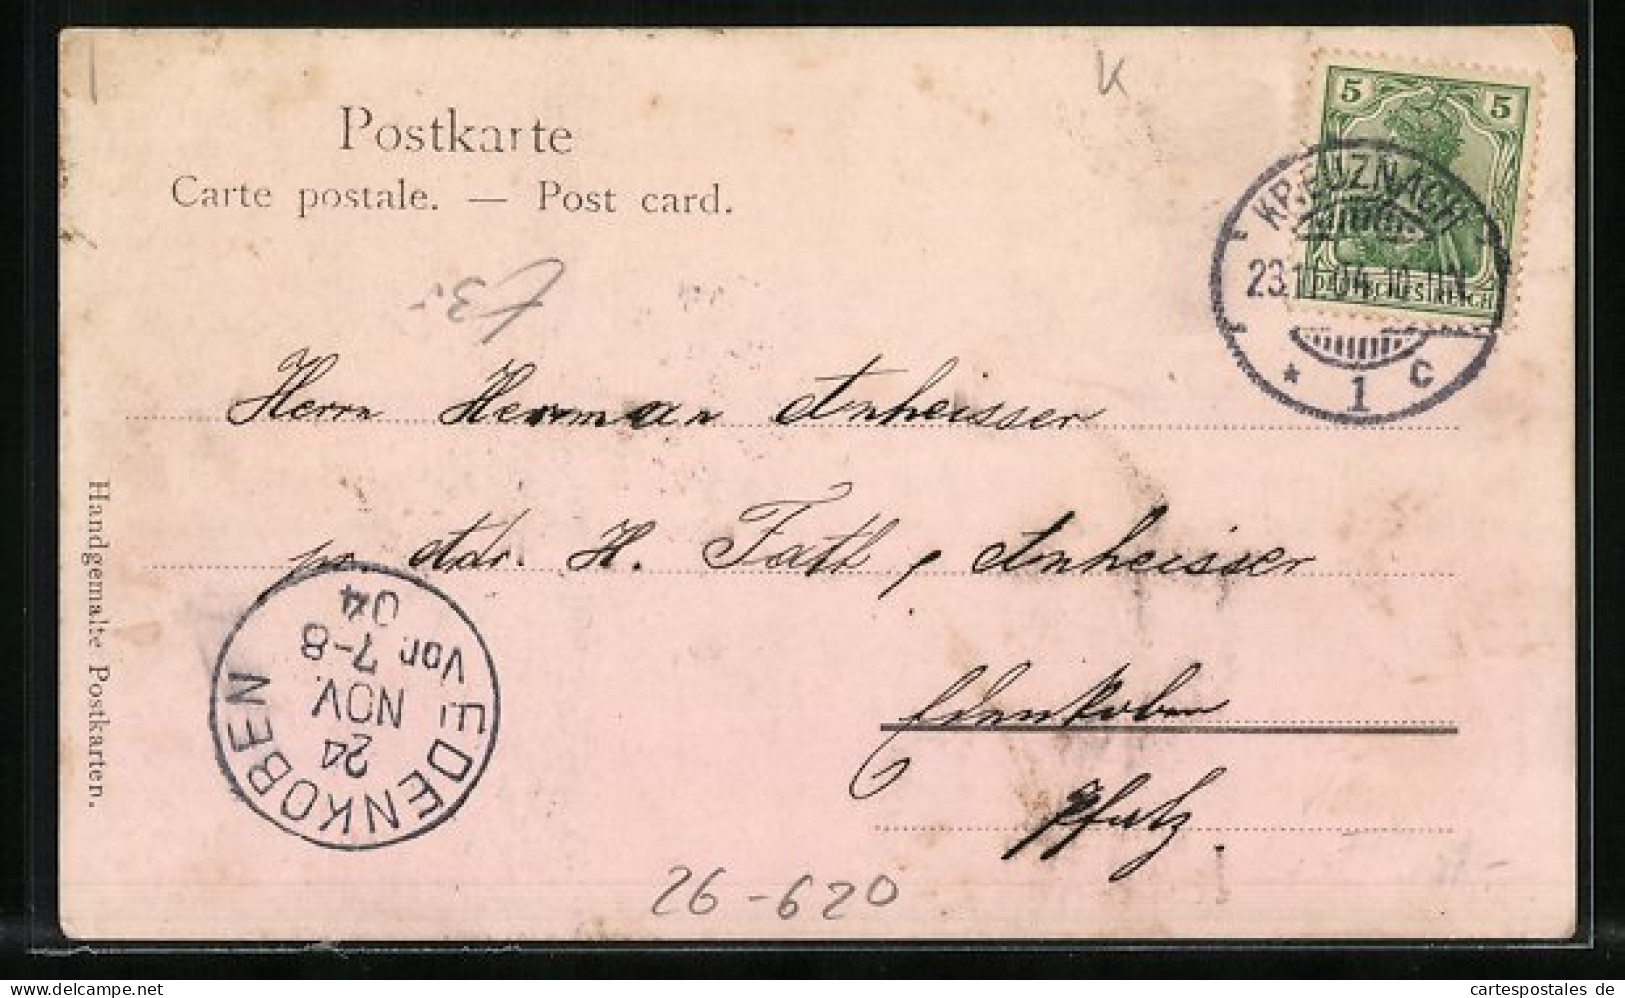 K
Postkarte
Carte postale. — Post card.
5 5
DEUTSCHES REICH
KREUZNACH
23.11.04. 10-11N.
* 1 c
Herrn Herrman Anheisser
pr. Adr. H. Anheisser
Edenkoben
Pfalz.
EDENKOBEN
24
NOV.
Vor. 7-8
04
Handgemalte Postkarten.
26-620
www.delcampe.net
cartespostales de